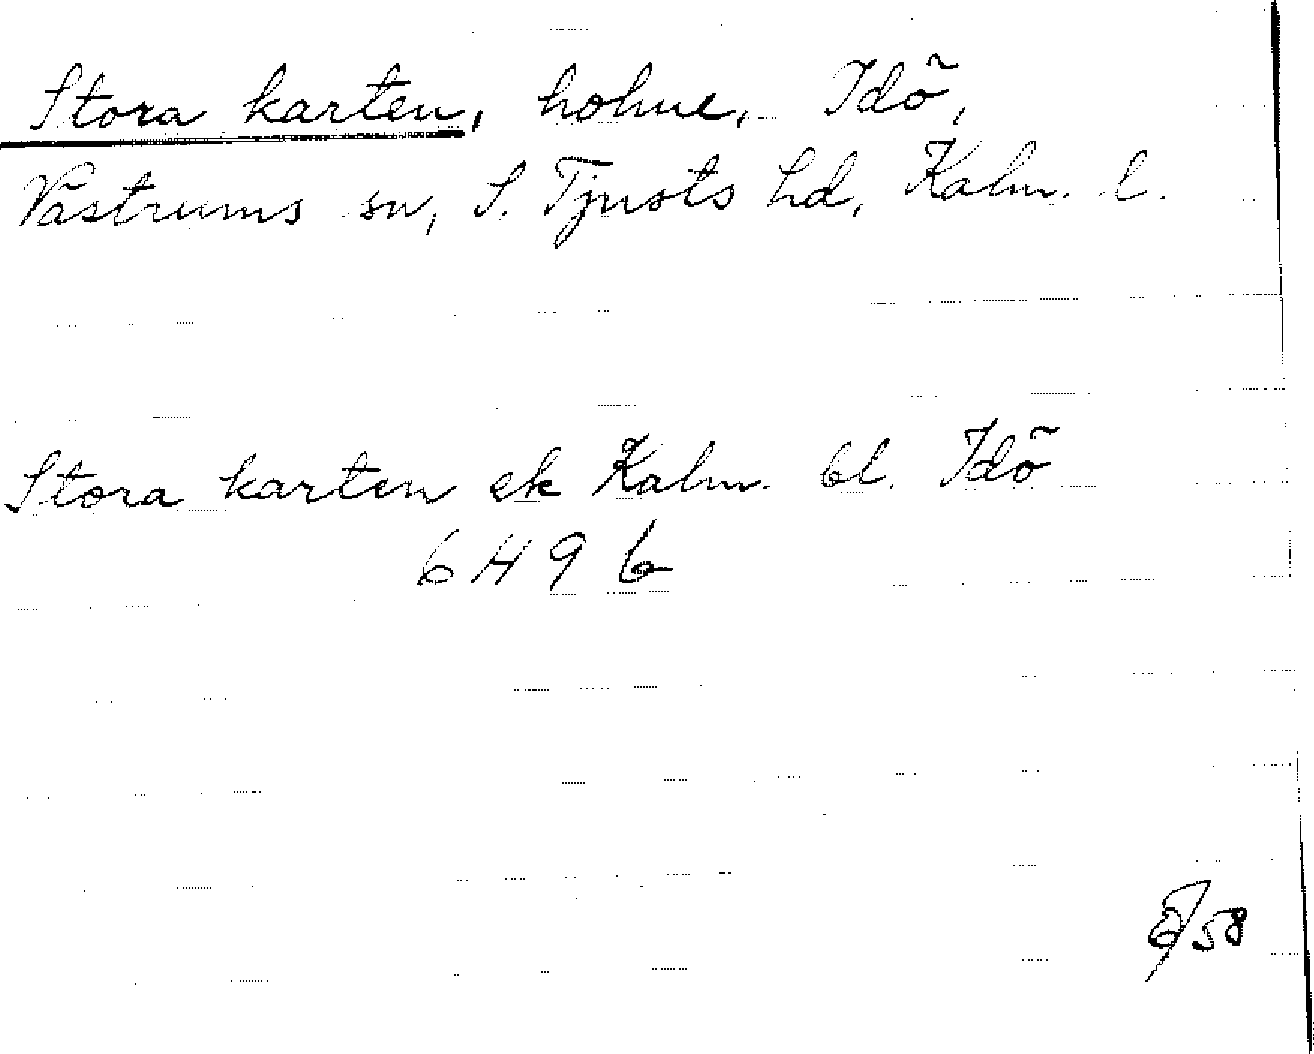 Stora karten, holme, Idö,
Västrums sn, S. Tjusts hd, Kalm. l.
Stora karten ek Kalm. bl. Idö
6 H 9 b